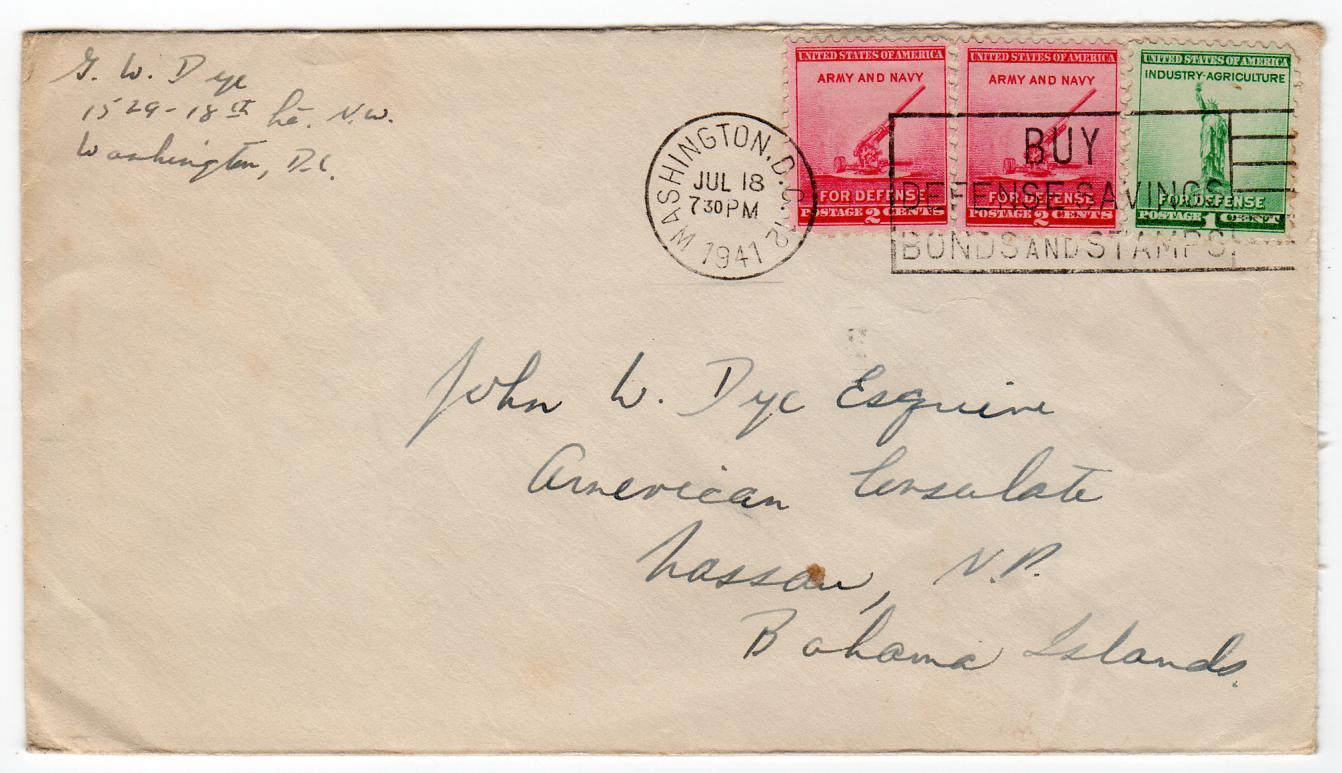 G. W. Dye
1529-18th St. N.W.
Washington, D.C.
UNITED STATES OF AMERICA
ARMY AND NAVY
FOR DEFENSE
POSTAGE 2 CENTS
UNITED STATES OF AMERICA
ARMY AND NAVY
FOR DEFENSE
POSTAGE 2 CENTS
UNITED STATES OF AMERICA
INDUSTRY-AGRICULTURE
FOR DEFENSE
POSTAGE 1 CENT
WASHINGTON, D.C. 12
JUL 18
730 PM
1941
BUY
DEFENSE SAVINGS
BONDS AND STAMPS
John W. Dye Esquire
American Consulate
Nassau, N.P.
Bahama Islands.